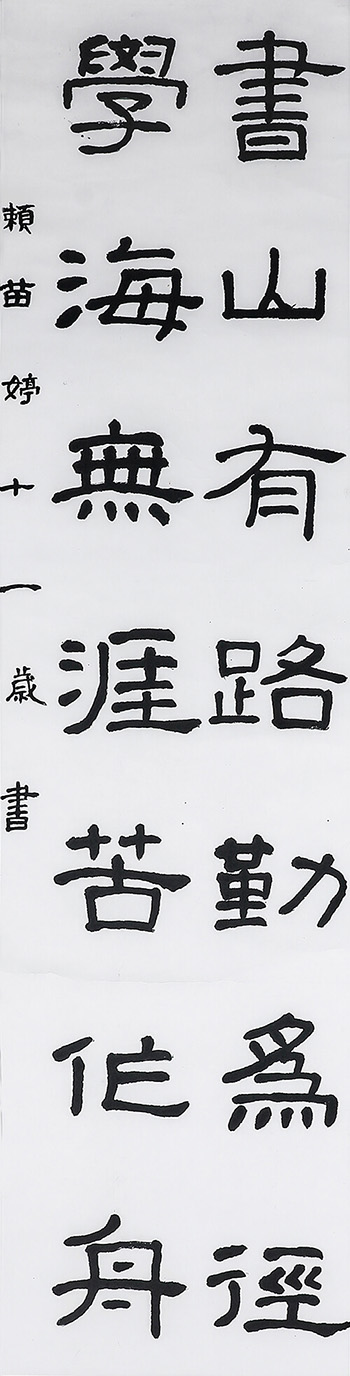 書山有路勤爲徑
學海無涯苦作舟
賴苗婷十一歲書